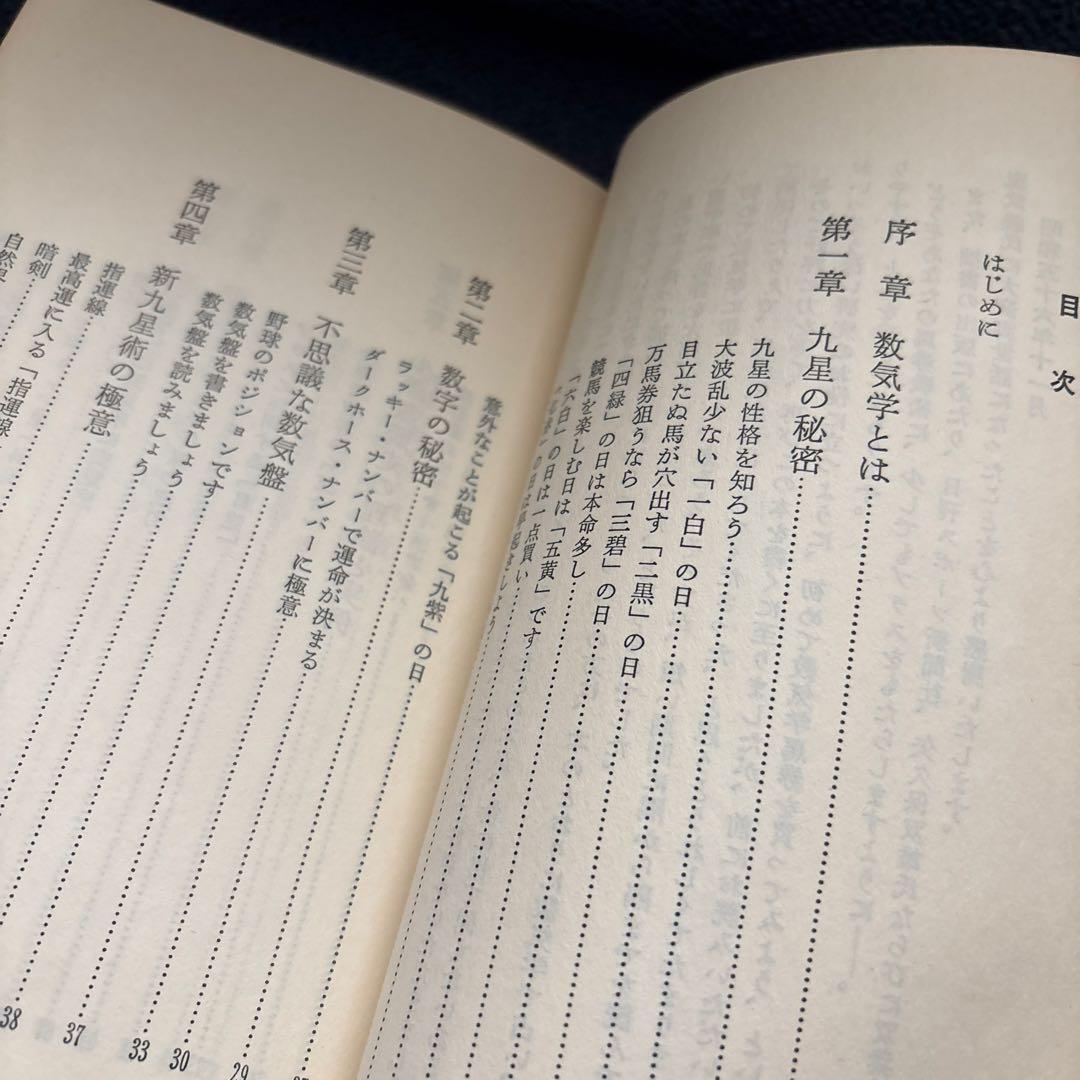 目次
はじめに
序章 数気学とは
第一章 九星の秘密
九星の性格を知ろう
大波乱少ない「一白」の日
目立たぬ馬が穴出す「二黒」の日
万馬券狙うなら「三碧」の日
「四緑」の日は本命多し
競馬を楽しむ日は「五黄」です
「六白」の日は一点買い
の日は早起きしよう
意外なことが起こる「九紫」の日
第二章 数字の秘密
ラッキー・ナンバーで運命が決まる
ダークホース・ナンバーに極意
第三章 不思議な数気盤
野球のポジションです
数気盤を書きましょう 29
数気盤を読みましょう 30
第四章 新九星術の極意 33
指運線
最高運に入る「指運線 37
暗剣
自然界 38